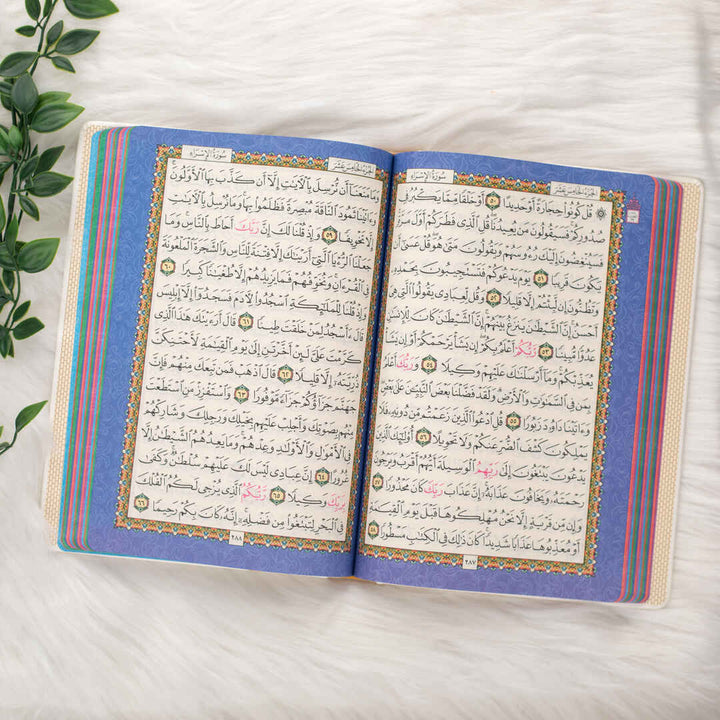 الجزء الخامس عشر
سورة الإسراء
۞ قُلْ كُونُوا۟ حِجَارَةً أَوْ حَدِيدًا ٥٠ أَوْ خَلْقًا مِّمَّا يَكْبُرُ فِى
صُدُورِكُمْ فَسَيَقُولُونَ مَن يُعِيدُنَا قُلِ ٱلَّذِى فَطَرَكُمْ أَوَّلَ مَرَّةٍ
فَسَيُنْغِضُونَ إِلَيْكَ رُءُوسَهُمْ وَيَقُولُونَ مَتَىٰ هُوَ قُلْ عَسَىٰٓ أَن
يَكُونَ قَرِيبًا ٥١ يَوْمَ يَدْعُوكُمْ فَتَسْتَجِيبُونَ بِحَمْدِهِۦ
وَتَظُنُّونَ إِن لَّبِثْتُمْ إِلَّا قَلِيلًا ٥٢ وَقُل لِّعِبَادِى يَقُولُوا۟ ٱلَّتِى هِىَ
أَحْسَنُ إِنَّ ٱلشَّيْطَـٰنَ يَنزَغُ بَيْنَهُمْ إِنَّ ٱلشَّيْطَـٰنَ كَانَ لِلْإِنسَـٰنِ
عَدُوًّا مُّبِينًا ٥٣ رَّبُّكُمْ أَعْلَمُ بِكُمْ إِن يَشَأْ يَرْحَمْكُمْ أَوْ إِن يَشَأْ
يُعَذِّبْكُمْ وَمَآ أَرْسَلْنَـٰكَ عَلَيْهِمْ وَكِيلًا ٥٤ وَرَبُّكَ أَعْلَمُ
بِمَن فِى ٱلسَّمَـٰوَٰتِ وَٱلْأَرْضِ وَلَقَدْ فَضَّلْنَا بَعْضَ ٱلنَّبِيِّـۧنَ عَلَىٰ بَعْضٍ
وَءَاتَيْنَا دَاوُۥدَ زَبُورًا ٥٥ قُلِ ٱدْعُوا۟ ٱلَّذِينَ زَعَمْتُم مِّن دُونِهِۦ فَلَا
يَمْلِكُونَ كَشْفَ ٱلضُّرِّ عَنكُمْ وَلَا تَحْوِيلًا ٥٦ أُو۟لَـٰٓئِكَ ٱلَّذِينَ
يَدْعُونَ يَبْتَغُونَ إِلَىٰ رَبِّهِمُ ٱلْوَسِيلَةَ أَيُّهُمْ أَقْرَبُ وَيَرْجُونَ
رَحْمَتَهُۥ وَيَخَافُونَ عَذَابَهُۥٓ إِنَّ عَذَابَ رَبِّكَ كَانَ مَحْذُورًا ٥٧
وَإِن مِّن قَرْيَةٍ إِلَّا نَحْنُ مُهْلِكُوهَا قَبْلَ يَوْمِ ٱلْقِيَـٰمَةِ
أَوْ مُعَذِّبُوهَا عَذَابًا شَدِيدًا كَانَ ذَٰلِكَ فِى ٱلْكِتَـٰبِ مَسْطُورًا ٥٨
٢٨٧
الجزء الخامس عشر
سورة الإسراء
وَمَا مَنَعَنَآ أَن نُّرْسِلَ بِٱلْـَٔايَـٰتِ إِلَّآ أَن كَذَّبَ بِهَا ٱلْأَوَّلُونَ
وَءَاتَيْنَا ثَمُودَ ٱلنَّاقَةَ مُبْصِرَةً فَظَلَمُوا۟ بِهَا وَمَا نُرْسِلُ بِٱلْـَٔايَـٰتِ
إِلَّا تَخْوِيفًا ٥٩ وَإِذْ قُلْنَا لَكَ إِنَّ رَبَّكَ أَحَاطَ بِٱلنَّاسِ وَمَا
جَعَلْنَا ٱلرُّءْيَا ٱلَّتِىٓ أَرَيْنَـٰكَ إِلَّا فِتْنَةً لِّلنَّاسِ وَٱلشَّجَرَةَ ٱلْمَلْعُونَةَ
فِى ٱلْقُرْءَانِ وَنُخَوِّفُهُمْ فَمَا يَزِيدُهُمْ إِلَّا طُغْيَـٰنًا كَبِيرًا ٦٠
وَإِذْ قُلْنَا لِلْمَلَـٰٓئِكَةِ ٱسْجُدُوا۟ لِـَٔادَمَ فَسَجَدُوٓا۟ إِلَّآ إِبْلِيسَ
قَالَ ءَأَسْجُدُ لِمَنْ خَلَقْتَ طِينًا ٦١ قَالَ أَرَءَيْتَكَ هَـٰذَا ٱلَّذِى
كَرَّمْتَ عَلَىَّ لَئِنْ أَخَّرْتَنِ إِلَىٰ يَوْمِ ٱلْقِيَـٰمَةِ لَأَحْتَنِكَنَّ
ذُرِّيَّتَهُۥٓ إِلَّا قَلِيلًا ٦٢ قَالَ ٱذْهَبْ فَمَن تَبِعَكَ مِنْهُمْ فَإِنَّ
جَهَنَّمَ جَزَآؤُكُمْ جَزَآءً مَّوْفُورًا ٦٣ وَٱسْتَفْزِزْ مَنِ ٱسْتَطَعْتَ
مِنْهُم بِصَوْتِكَ وَأَجْلِبْ عَلَيْهِم بِخَيْلِكَ وَرَجِلِكَ وَشَارِكْهُمْ
فِى ٱلْأَمْوَٰلِ وَٱلْأَوْلَـٰدِ وَعِدْهُمْ وَمَا يَعِدُهُمُ ٱلشَّيْطَـٰنُ إِلَّا
غُرُورًا ٦٤ إِنَّ عِبَادِى لَيْسَ لَكَ عَلَيْهِمْ سُلْطَـٰنٌ وَكَفَىٰ
بِرَبِّكَ وَكِيلًا ٦٥ رَّبُّكُمُ ٱلَّذِى يُزْجِى لَكُمُ ٱلْفُلْكَ
فِى ٱلْبَحْرِ لِتَبْتَغُوا۟ مِن فَضْلِهِۦٓ إِنَّهُۥ كَانَ بِكُمْ رَحِيمًا ٦٦
٢٨٨